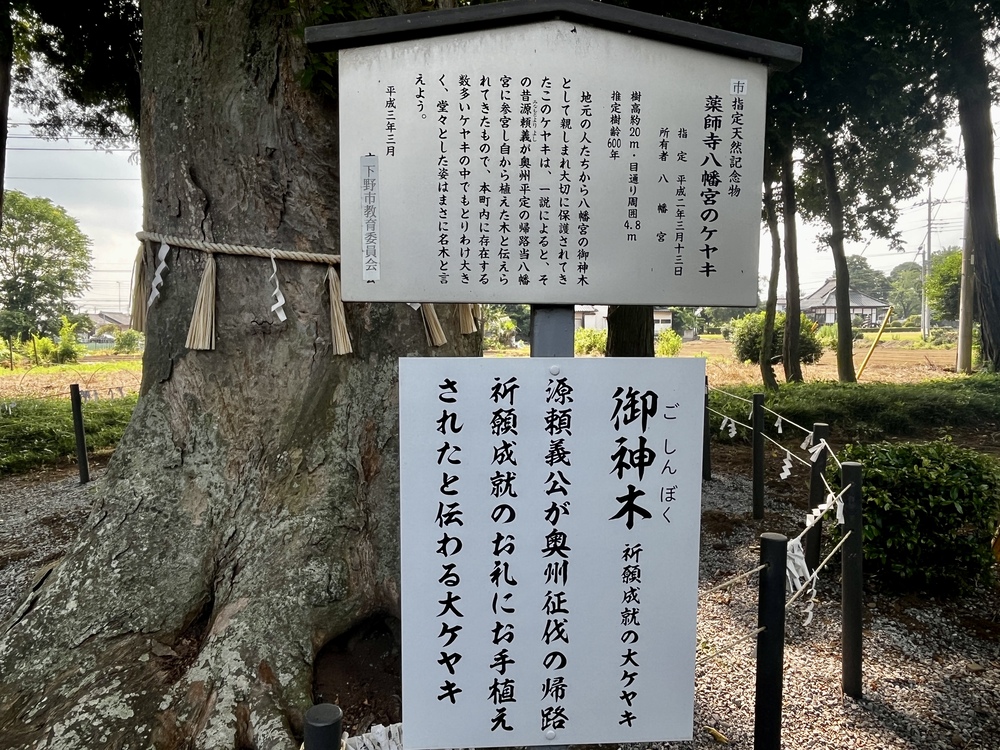 市指定天然記念物
薬師寺八幡宮のケヤキ
指定 平成二年三月十三日
所有者 八幡宮
樹高約20m・目通り周囲4.8m
推定樹齢600年
地元の人たちから八幡宮の御神木
として親しまれ大切に保護されてき
たこのケヤキは、一説によると、そ
の昔源頼義が奥州平定の帰路当八幡
みなもとよりよし
宮に参宮し自から植えた木と伝えら
れてきたもので、本町内に存在する
数多いケヤキの中でもとりわけ大き
く、堂々とした姿はまさに名木と言
えよう。
平成三年三月
下野市教育委員会
御神木
ごしんぼく
祈願成就の大ケヤキ
源頼義公が奥州征伐の帰路
祈願成就のお礼にお手植え
されたと伝わる大ケヤキ